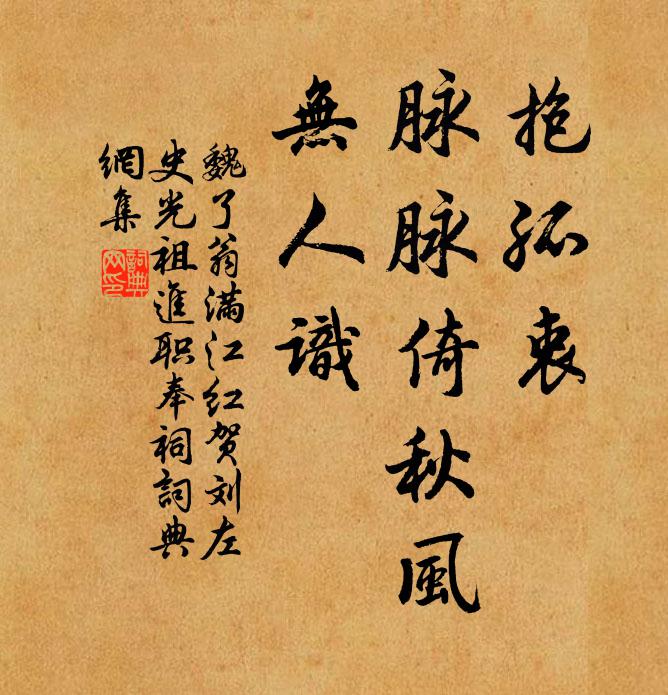 抱孤衷
脉脉倚秋風
無人識
魏了翁滿江红贺刘左
史光祖進职奉祠詞典
網集
詞典網印